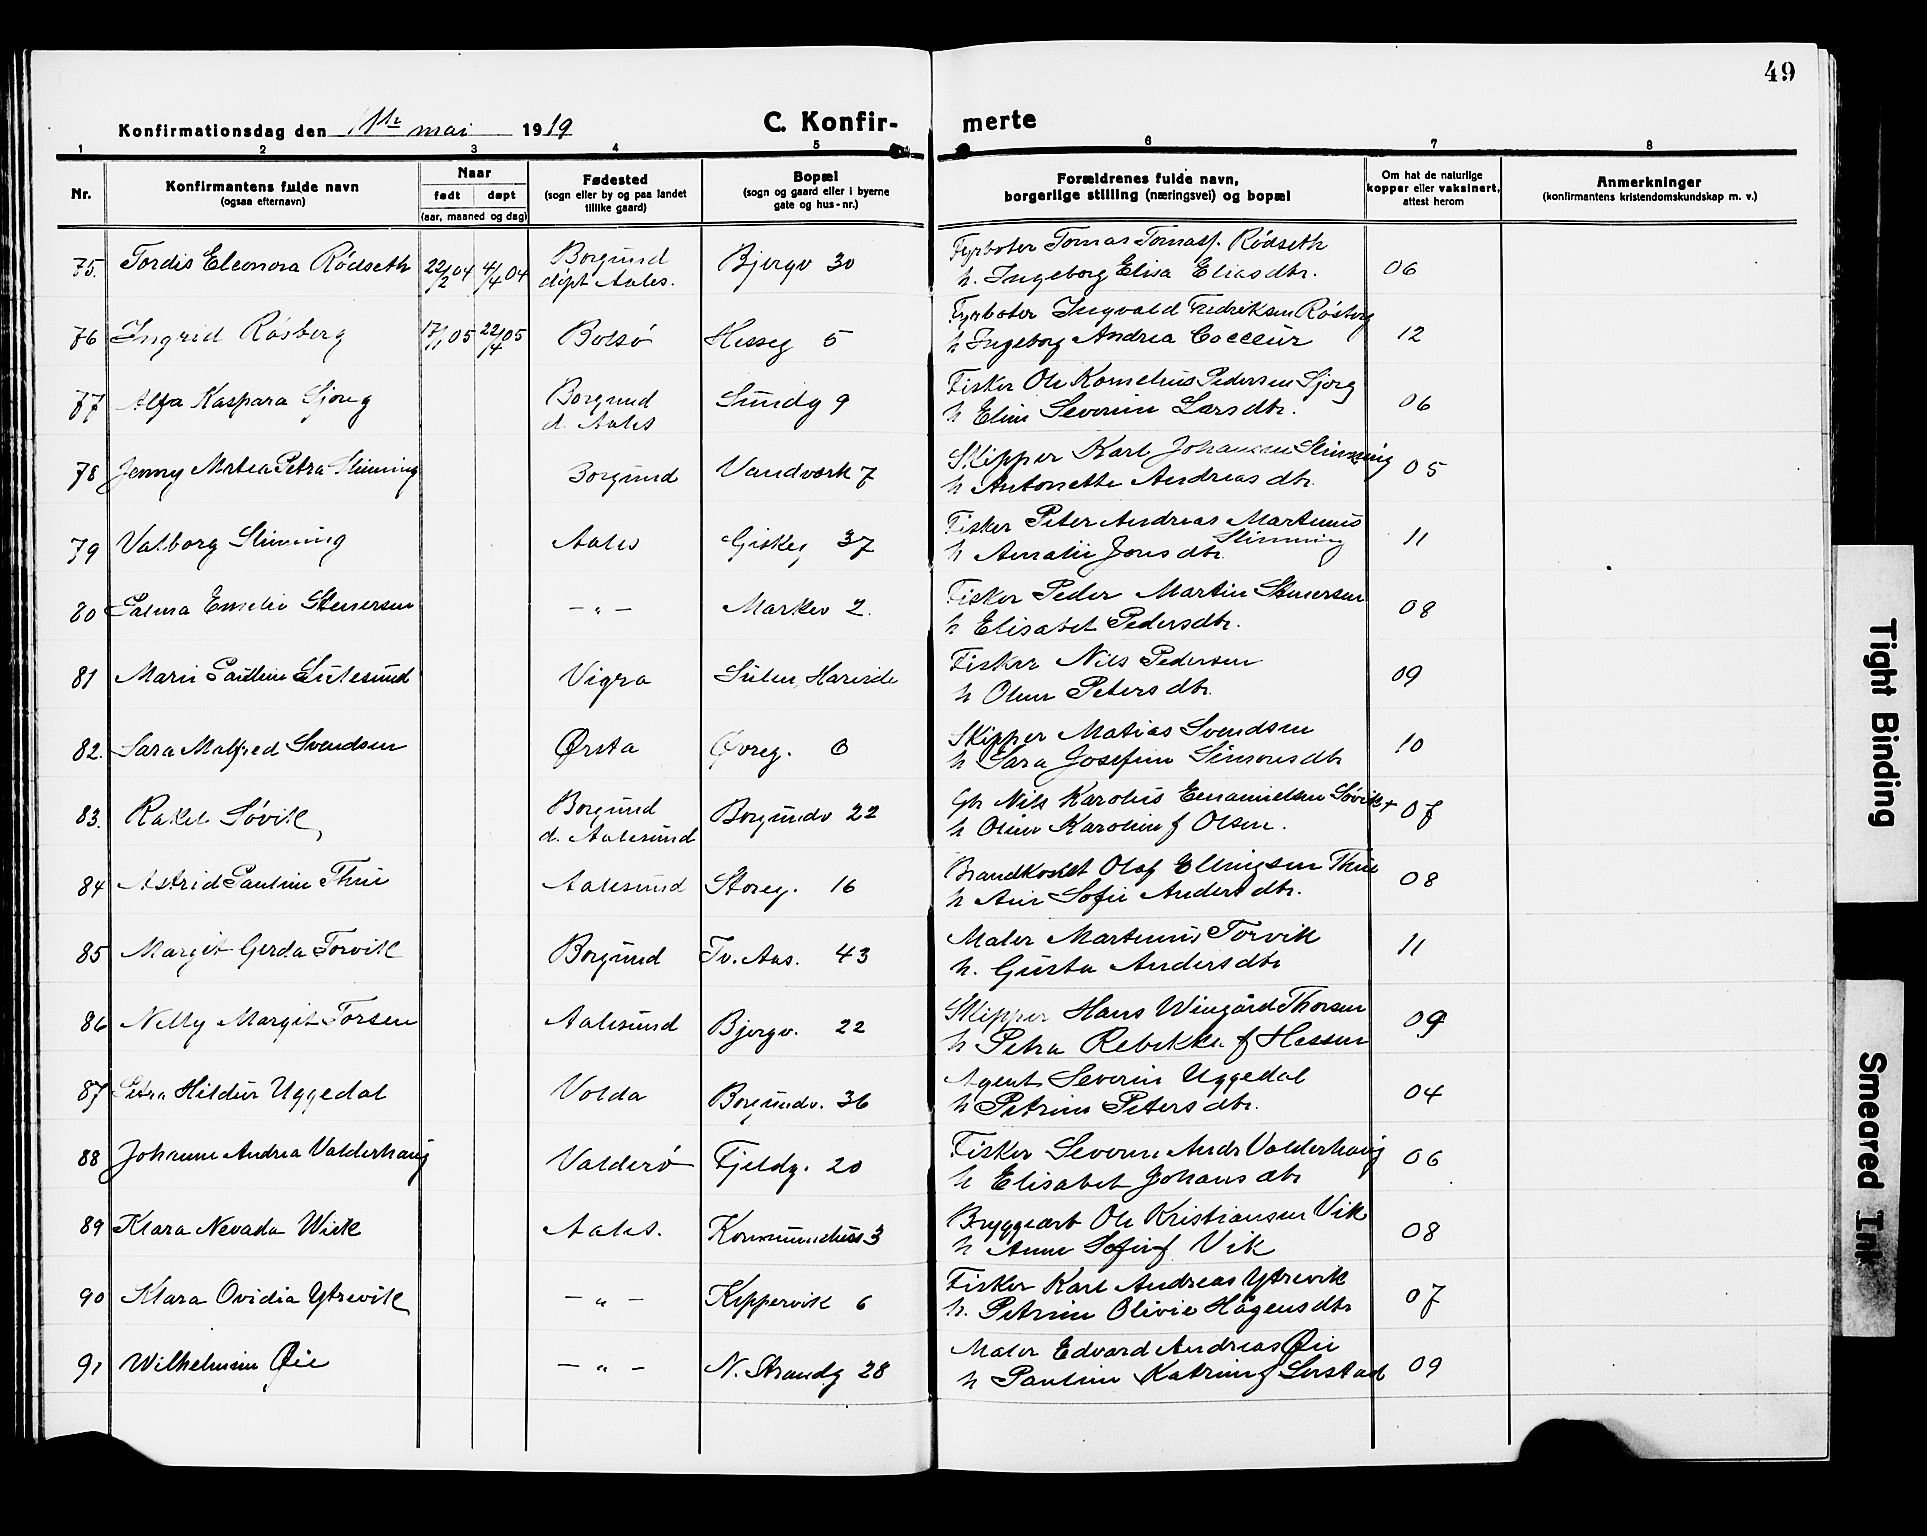 49
Konfirmationsdag den 11te mai 1919 C. Konfir- merte
1 2 3 4 5 6 7 8
Nr. Konfirmantens fulde navn (ogsaa efternavn) Naar født døpt (aar, maaned og dag) Fødested (sogn eller by og paa landet tillike gaard) Bopæl (sogn og gaard eller i byerne gate og hus-nr.) Forældrenes fulde navn, borgerlige stilling (næringsvei) og bopæl Om hat de naturlige kopper eller vaksinert, attest herom Anmerkninger (konfirmantens kristendomskundskap m. v.)
75. Tordis Eleonora Rödseth 22/2 04 4/4 04 Borgund Bjergv 30 Fyrbøter Tomas Tomass. Rödseth 06
döpt Aales. h. Ingeborg Elisa Eliasdtr.
76 Ingrid Rösberg 17/1 05 22/4 05 Bolsö Hesseg 5 Fyrbøter Ingvald Fredriksen Rösberg 12
h Ingeborg Andrea
77 Alfa Kaspara Sjong Borgund Sundg 9 Fisker Ole Kornelius Pedersen Sjong 06
d. Aales h Eline Severine Larsdtr.
78 Jenny Matea Petra Slinning Borgund Vandverk 7 Skipper Karl Johansen Slinning 05
h Antonette Andreasdtr.
79 Valborg Slinning Aales Giskeg 37 Fisker Peter Andreas Martinus 11
Slinning
h Amalie Jonsdtr.
80 Palma Emelie Stenersen — " — Markev 2. Fisker Peder Martin Stenersen 08
h Elisabet Pedersdtr.
81 Marie Pauline Sulesund Vigra Sulen, Hareide Fisker Nils Pedersen 09
h Oline Petersdtr.
82. Sara Malfred Svendsen Ørsta Øvreg. 6 Skipper Matias Svendsen 10
h Sara Josefine Simonsdtr
83. Rakel Søvik Borgund Borgundv 22 Gbr Nils Karolus Emanuelsen Søvik + 07
d. Aalesund h Oline Karoline f Olsen.
84 Astrid Pauline Thue Aalesund Storeg. 16 Brandkonst Olaf Ellingsen Thue 08
h Ane Sofie Andersdtr.
85 Margit Gerda Torvik Borgund Tv. Aas. 43 Maler Martinus Torvik 11
h. Gusta Andersdtr
86 Nelly Margit Torsen Aalesund Bjergv. 22 Skipper Hans Wingård Thorsen 09
h Petra Rebekka f Hessen
87 Petra Hildur Uggedal Volda Borgundv. 36 Agent Severin Uggedal 04
h Petrine Petersdtr.
88 Johanne Andrea Valderhaug Valderö Fjeldg. 20 Fisker Severin Andr Valderhaug 06
h Elisabet Johansdtr
89 Klara Nevada Wiik Aales. Kommunehus 3 Bryggearb Ole Kristiansen Vik 08
h Anne Sofie f Vik
90 Klara Ovidia Ytrevik — " — Kippervik 6 Fisker Karl Andreas Ytrevik 07
h. Petrine Olivie Hågensdtr
91 Wilhelmine Øie — " — N. Strandg 28 Maler Edvard Andreas Øie 09
h Pauline Katrine f Serstad
Tight Binding
Smeared Ink